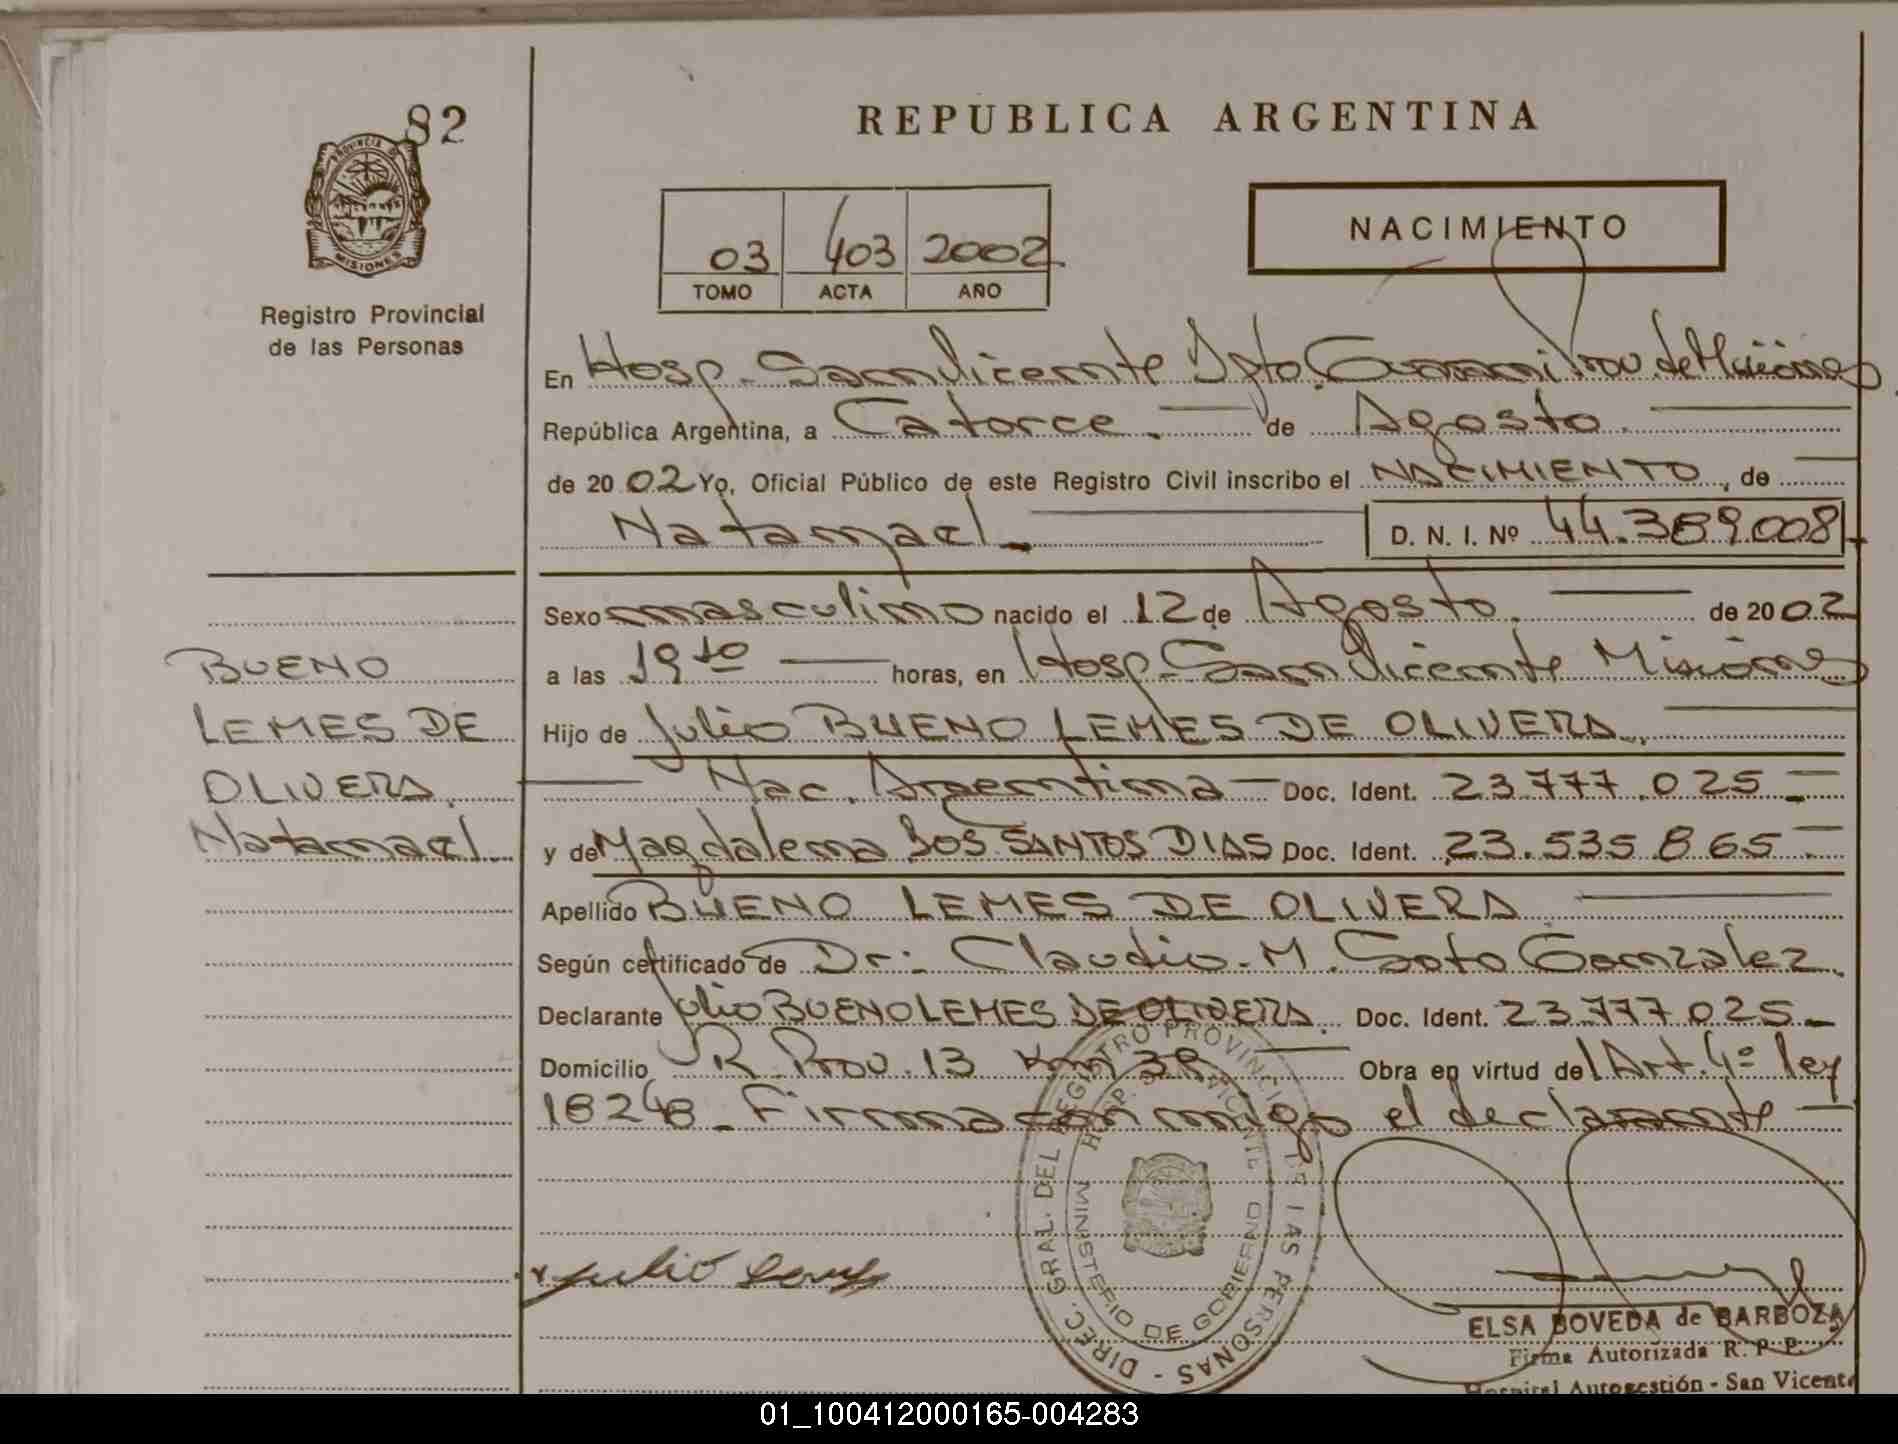 82
PROVINCIA DE
MISIONES
Registro Provincial
de las Personas
REPUBLICA ARGENTINA
03 403 2002
TOMO ACTA AÑO
NACIMIENTO
En Hosp. San Vicente Dpto. Guarani Prov. de Misiones
República Argentina, a Catorce. de Agosto.
de 2002 Yo, Oficial Público de este Registro Civil inscribo el NACIMIENTO, de
Natanael D. N. I. Nº 44.389.008
Sexo masculino nacido el 12 de Agosto. de 2002
a las 19 10 horas, en Hosp. San Vicente Misiones
Hijo de Julio BUENO LEMES DE OLIVERA.
Nac. Argentina Doc. Ident. 23.777.025
y de Magdalena DOS SANTOS DIAS Doc. Ident. 23.535.865
Apellido BUENO LEMES DE OLIVERA
Según certificado de Dr: Claudio M. Soto Gonzalez.
Declarante Julio BUENO LEMES DE OLIVERA. Doc. Ident. 23.777.025
Domicilio R. Prov. 13 Km 38 Obra en virtud del Art. 4º ley
18248. Firma con migo el declarante
BUENO
LEMES DE
OLIVERA.
Natanael
DIREC. GRAL. DEL REGISTRO PROVINCIAL DE LAS PERSONAS -
HOSP. S. VICENTE
MINISTERIO DE GOBIERNO
Julio
ELSA BOVEDA de BARBOZA
Firma Autorizada R. P. P.
Hospital Autogestión - San Vicente
01_100412000165-004283